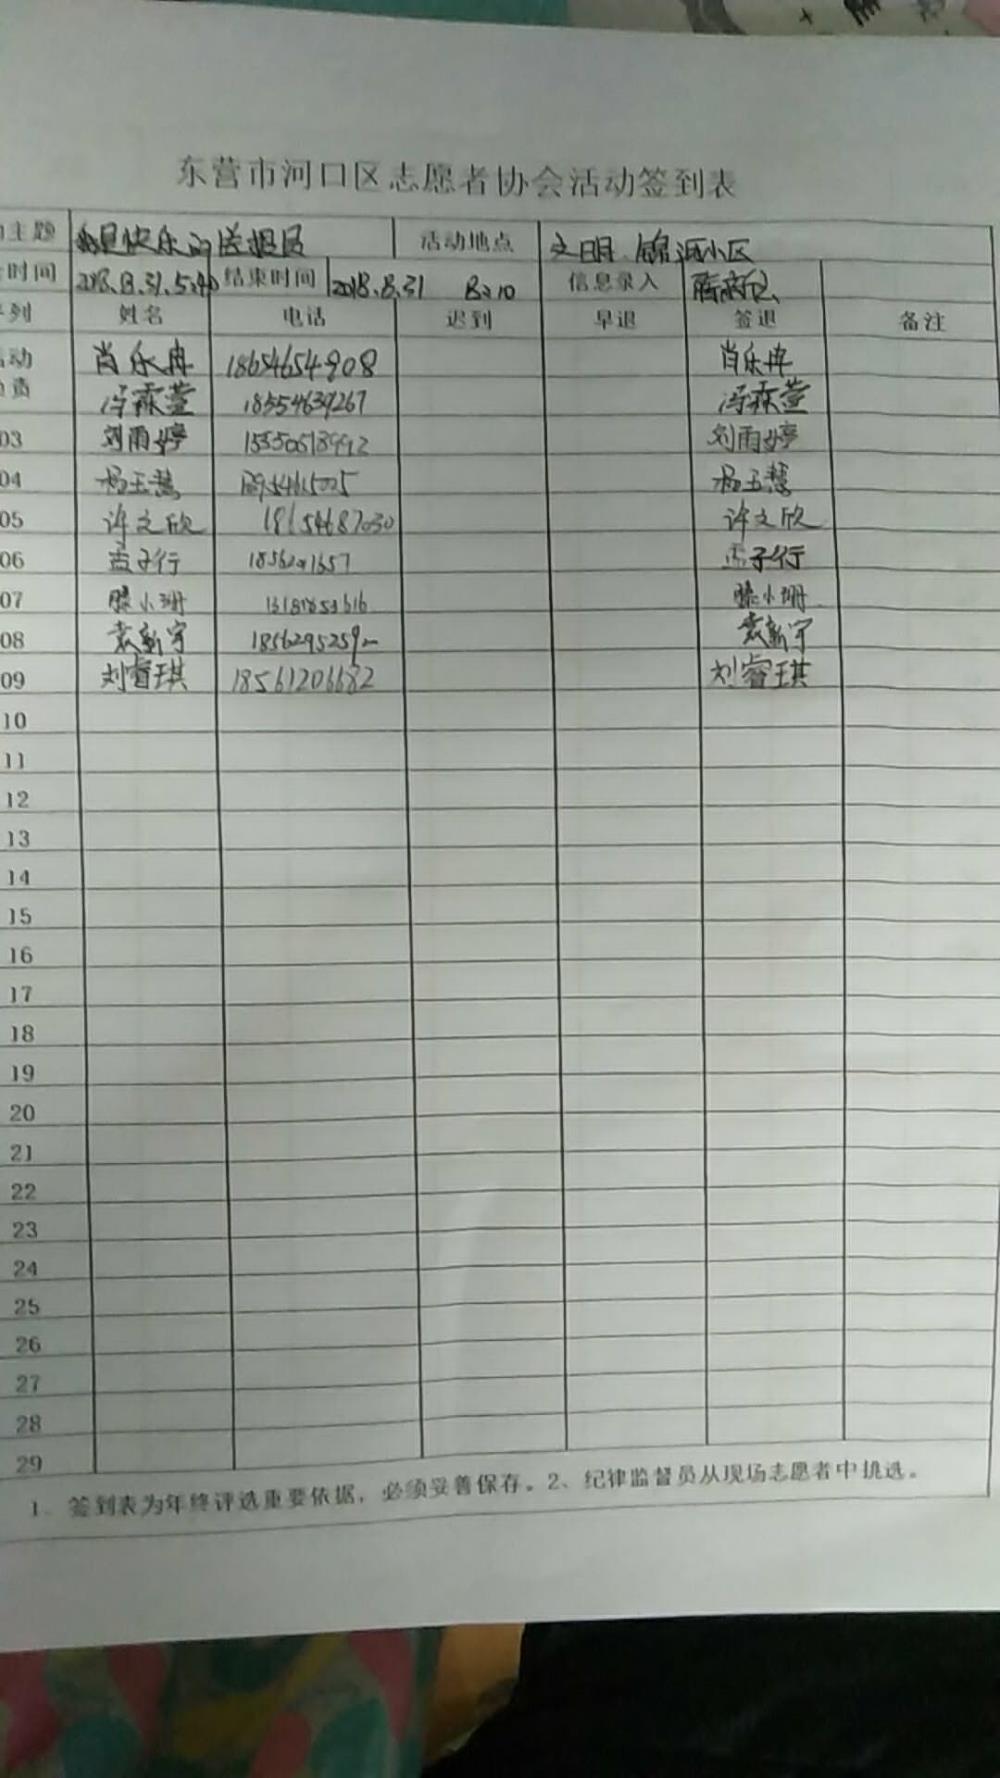 东营市河口区志愿者协会活动签到表
主题 我是快乐的送报员 活动地点 文明 锦源小区
时间 2018.8.31.5:40 结束时间 2018.8.31 8:10 信息录入
列 姓名 电话 迟到 早退 签退 备注
动 肖乐冉 18654654908 肖乐冉
责 冯霖萱 18554639267 冯霖萱
03 刘雨婷 15550518992 刘雨婷
04 杨玉慧 杨玉慧
05 许文欣 18154687030 许文欣
06 孟子行 孟子行
07 滕小珊 滕小珊
08 袁新宇 袁新宇
09 刘睿琪 18561206682 刘睿琪
10
11
12
13
14
15
16
17
18
19
20
21
22
23
24
25
26
27
28
29
1、签到表为年终评选重要依据，必须妥善保存。2、纪律监督员从现场志愿者中挑选。